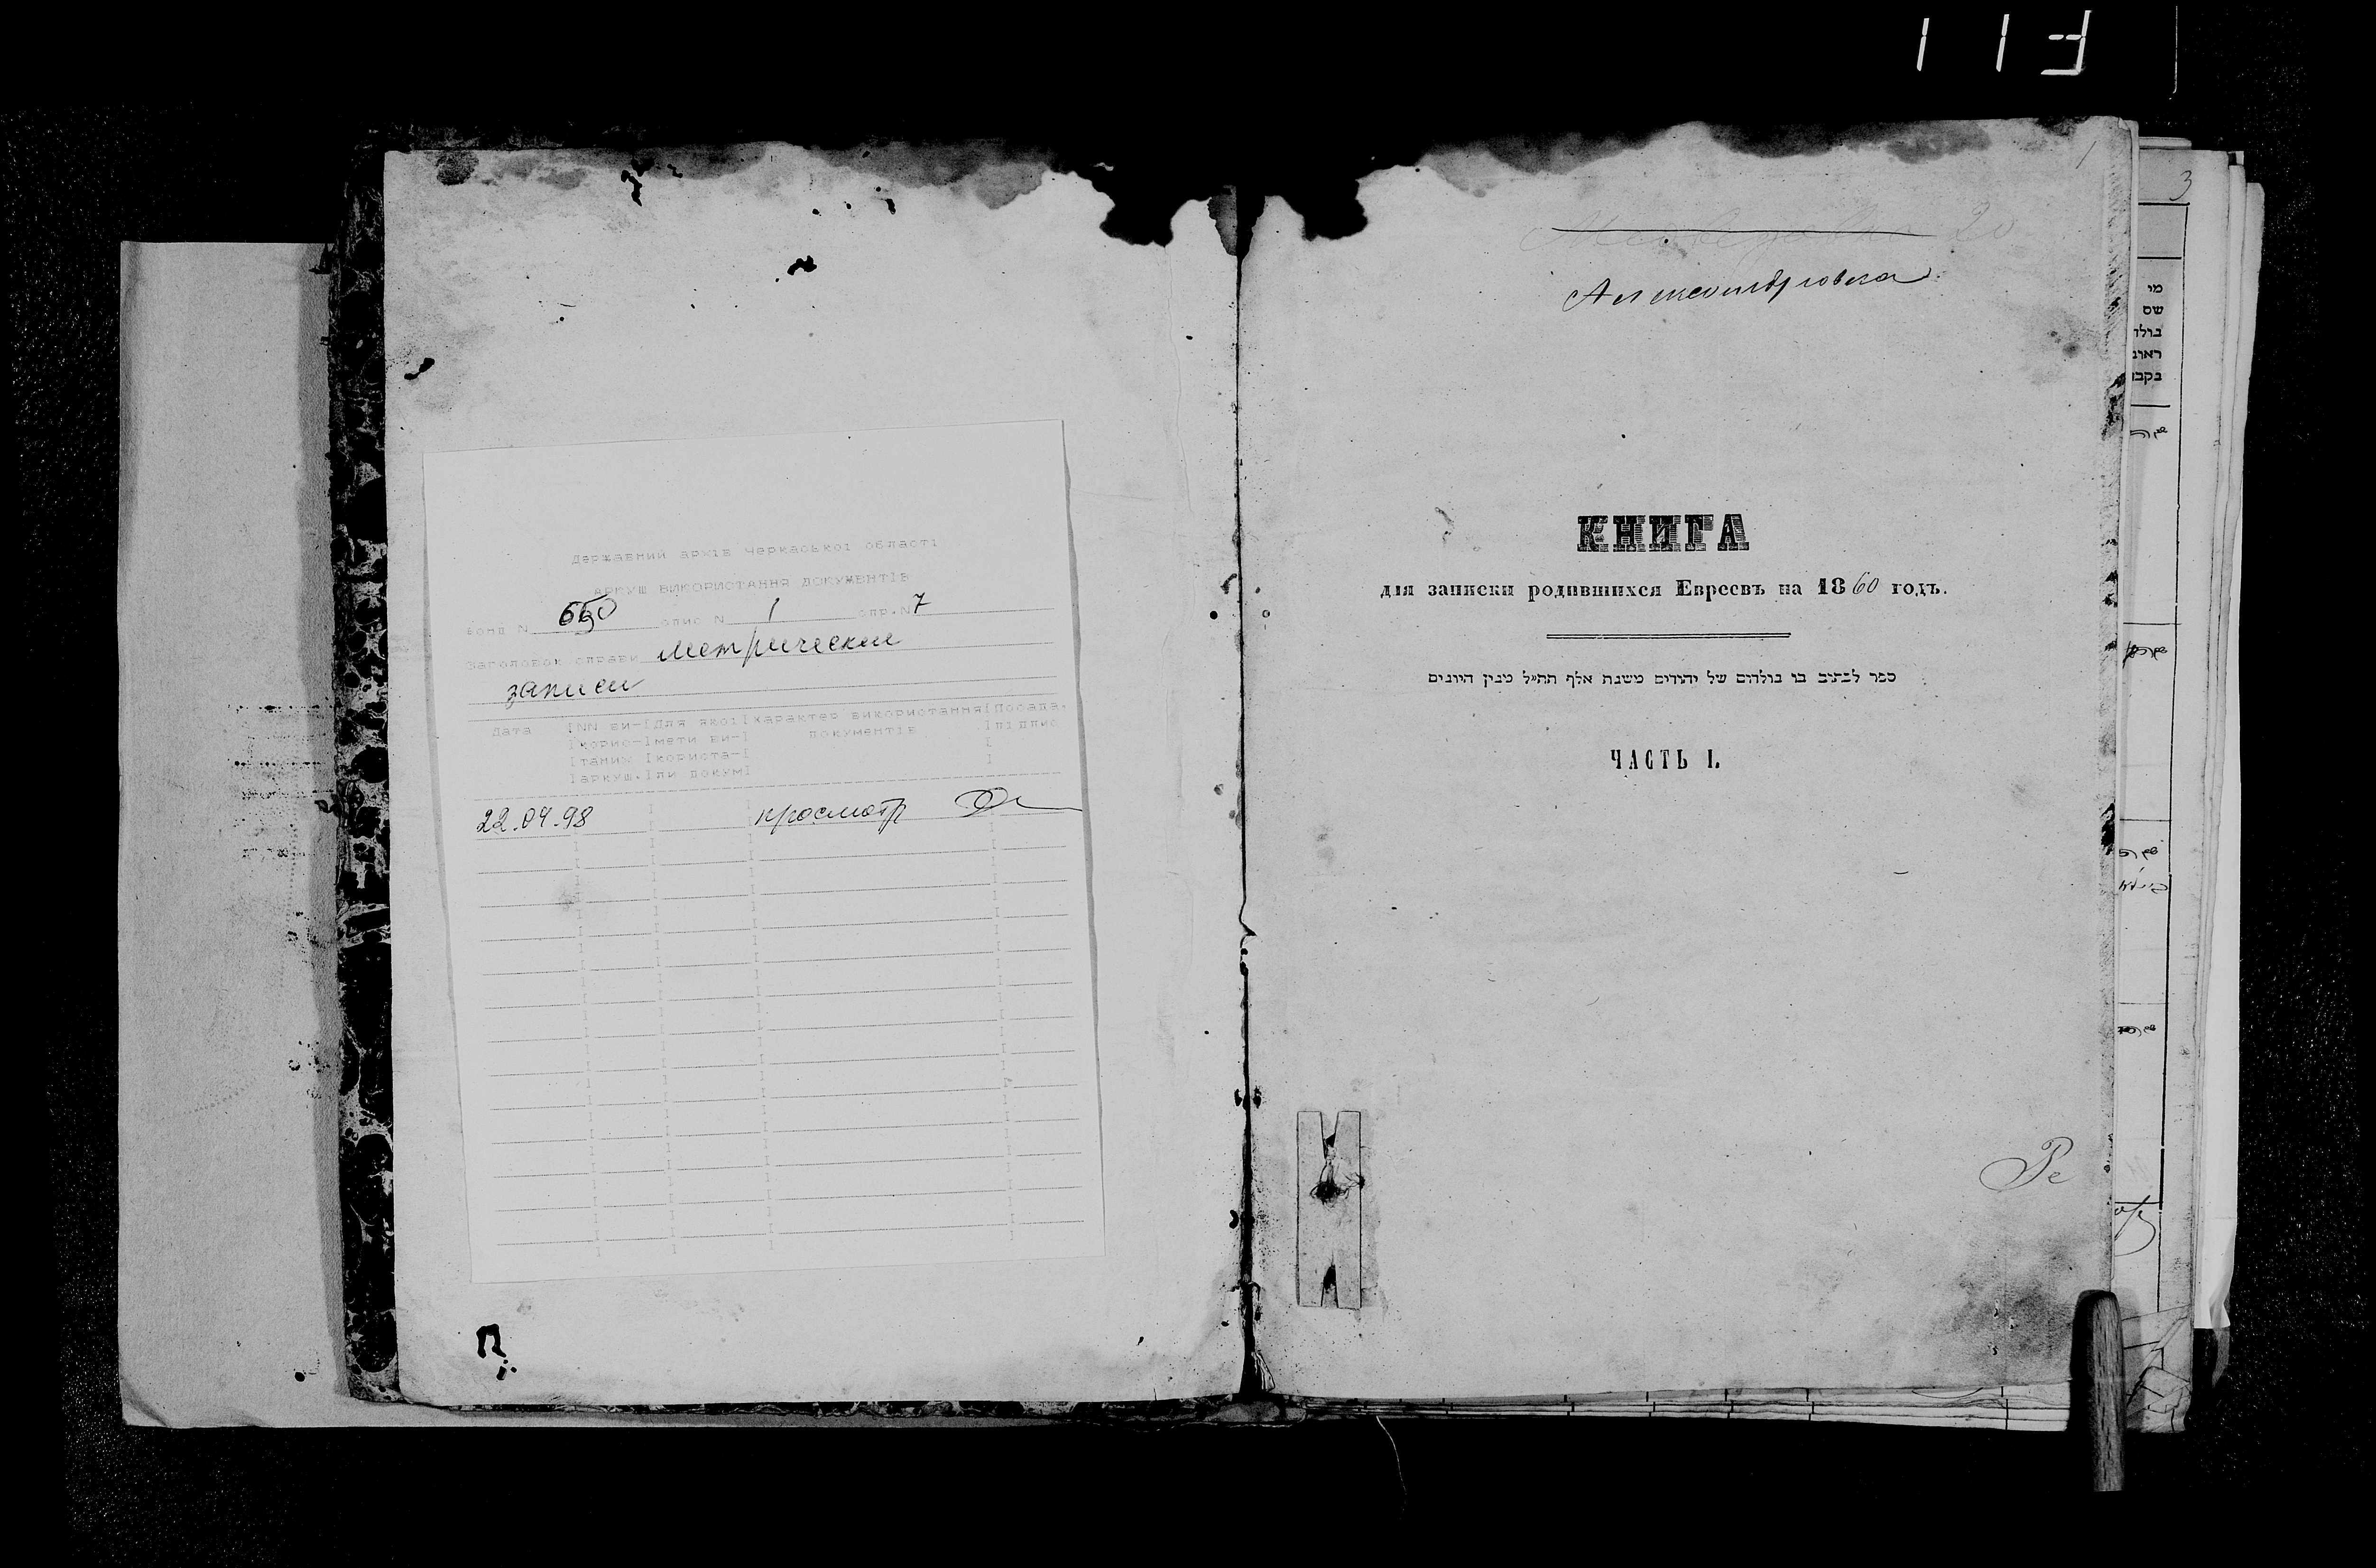 113
Державний архів Черкаської області
АРКУШ ВИКОРИСТАННЯ ДОКУМЕНТІВ
Фонд N 650 опис N 1 спр.N 7
Заголовок справи метрические
записи
Дата
NN ви-
корис-
таних
аркуш.
Для якої
мети ви-
користа-
ли докум
Характер використання
документів
Посада,
підпис
22.04.98 просмотр
1
20
Александровка
КНИГА
для записки родившихся Евреевъ на 1860 годъ.
ספר לכתוב בו נולדים של יהודים משנת אלף תת״ל מנין היונים
ЧАСТЬ I.
Ре
3
מי
שם